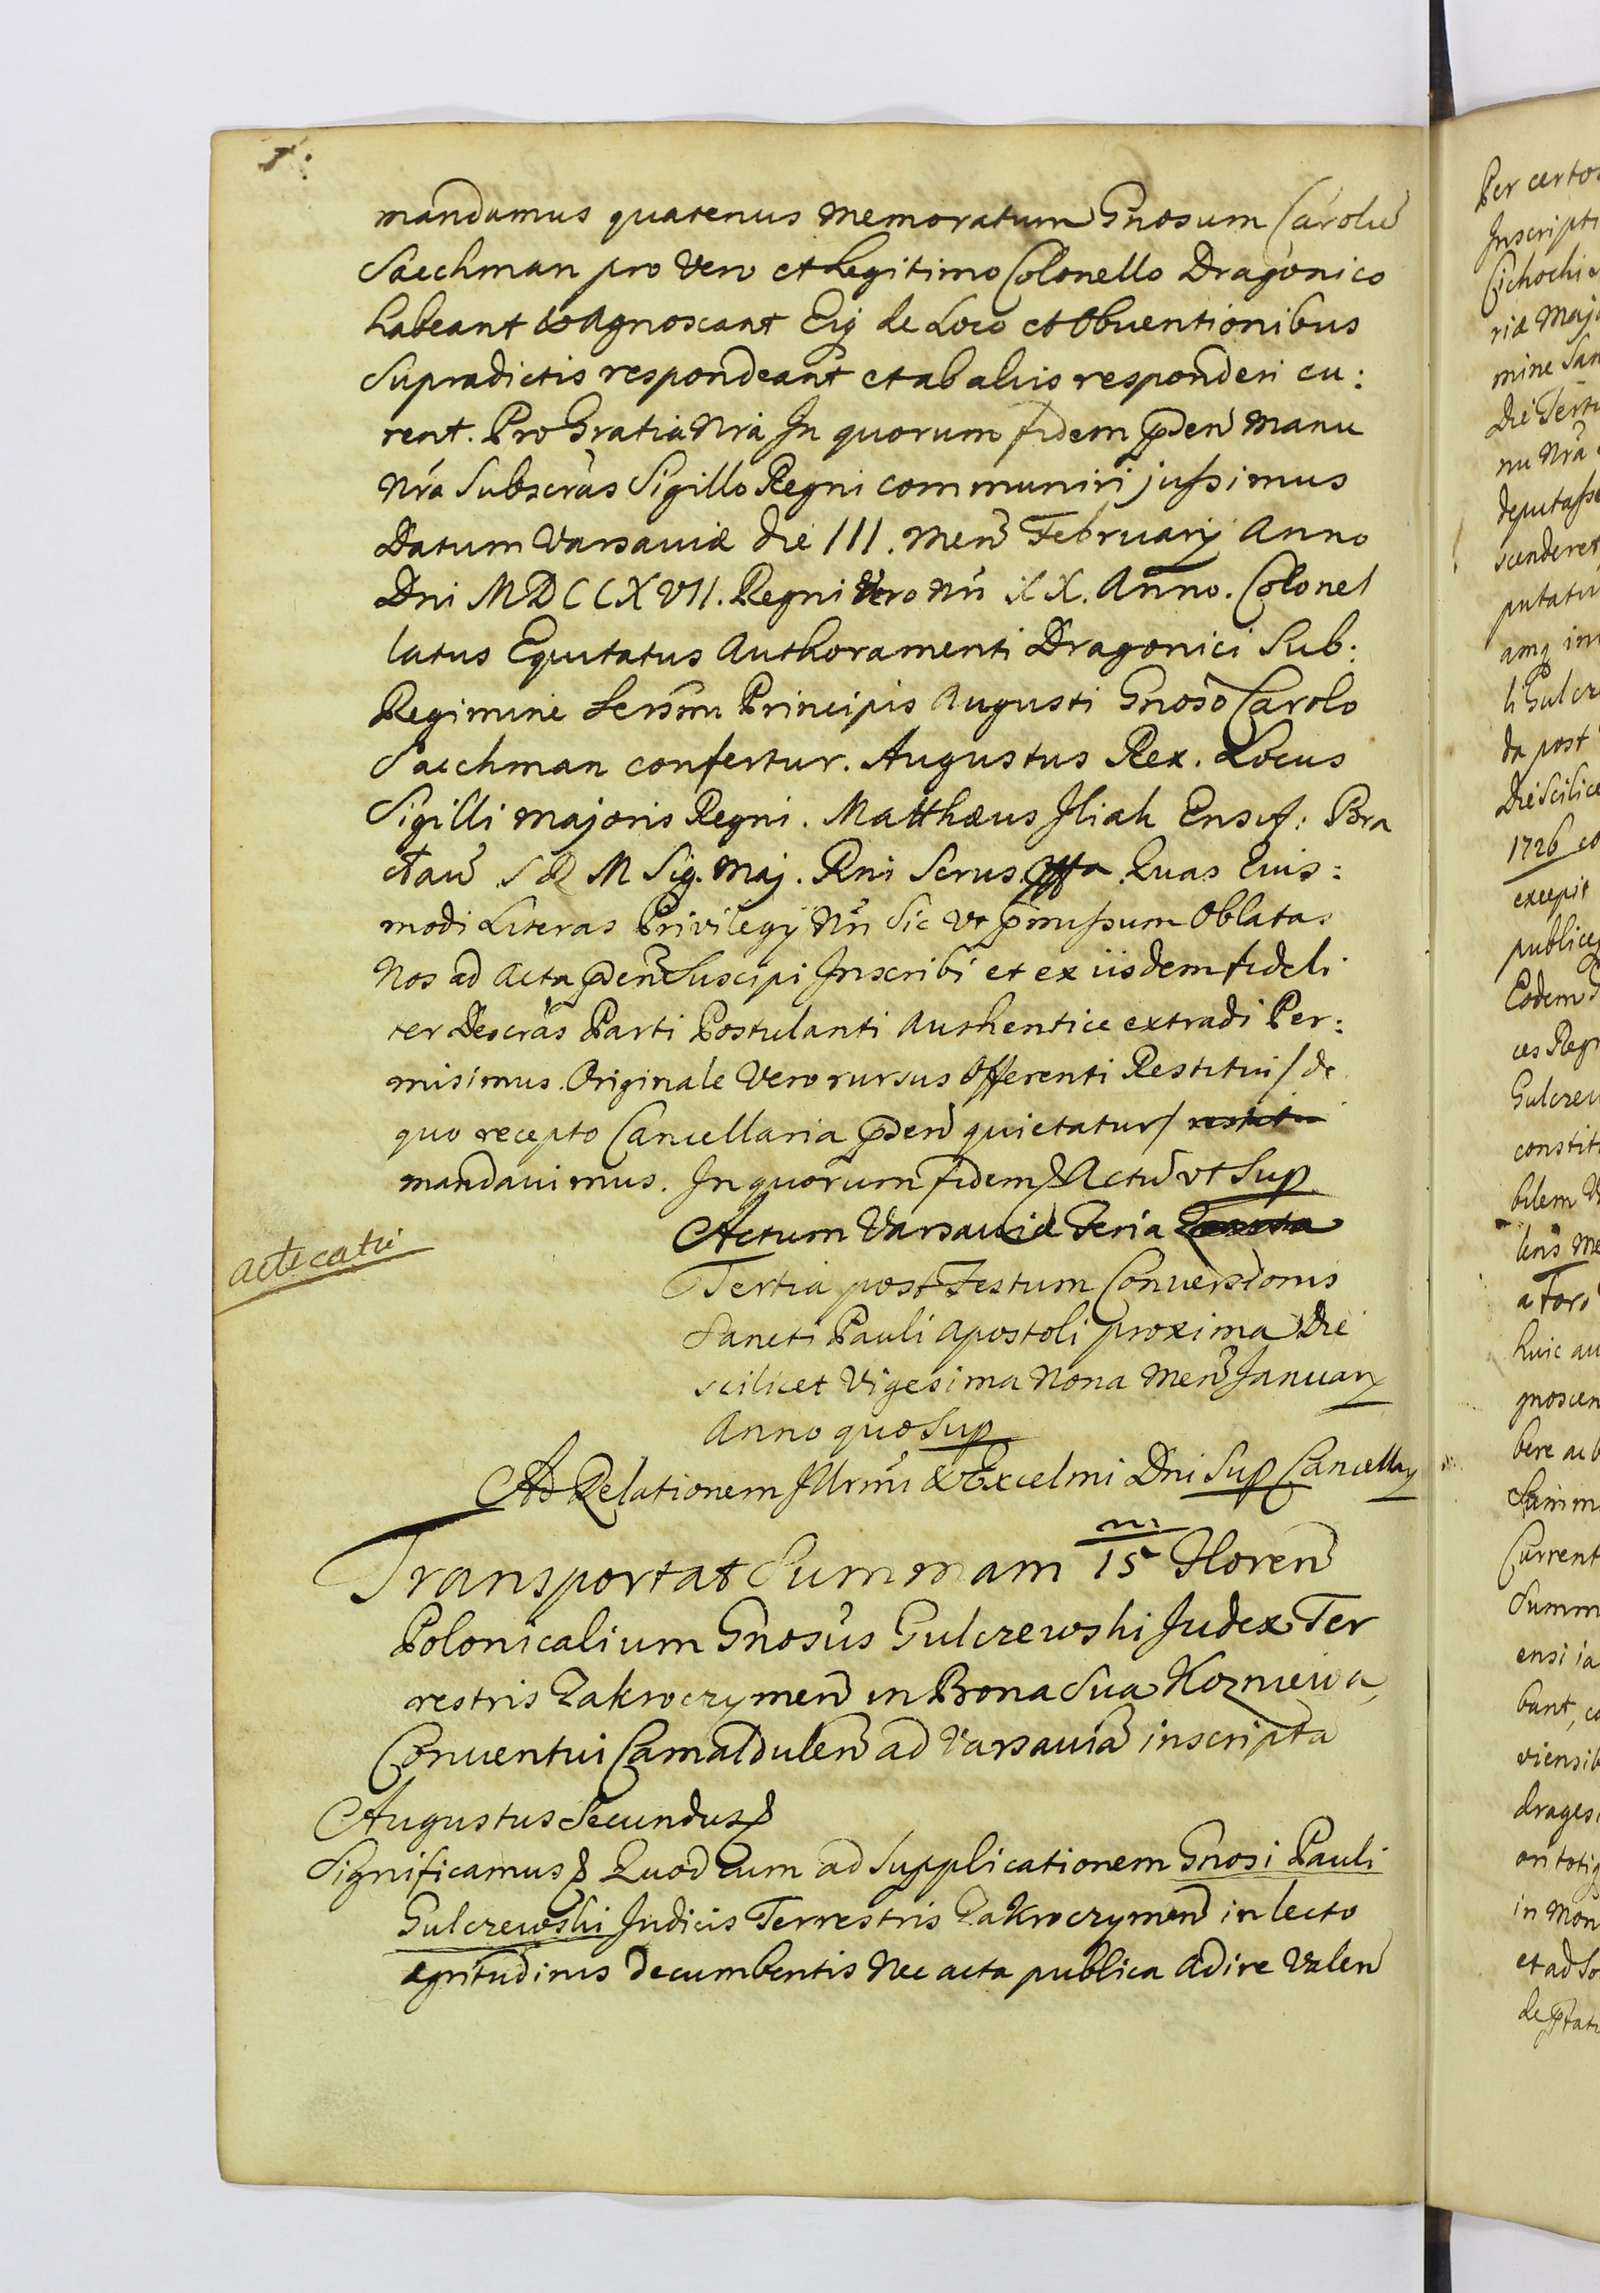 mandamus quatenus memoratum Gnosum Carolū
Saechman pro vero et Legitimo Colonello Dragonico
habeant & Agnoscant Eiq de Loco et Obventionibus
Supradictis respondeant et ab aliis responderi cu:
rent. Pro Gratia Nrā In quorum fidem pñden manu
Nrā Subscrãs Sigillo Regni communiri jussimus
Datum Varsaviæ die III. Menꝭ February Anno
Dni MDCCXVII. Regni Vero Nri XX. Anno. Colonel
latus Equitatus Authoramenti Dragonici Sub:
Regimine Serñmi Principis Augusti Gnoso Carolo
Saechman confertur. Augustus Rex. Locus
Sigilli majoris Regni. Matthæus Jliak Ensif: Bra
ctaū S R M Sig. Maj. Rni Scrus Quas Eius:
modi Literas Privilegÿ Nri Sic vt præmissum Oblatas
Nos ad Acta pñden Suscipi Inscribi et ex iisdem fideli
ter Descrãs Parti Postulanti Authentice extradi Per:
misimus. Originale Vero rursus Offerenti Restitui / de
quo recepto Cancellaria pñden quietatur / restitui
mandavimus. In quorum fidem & Actū vt Sup
Acticatū
Actum Varsaviæ Feria
Tertia post Festum Conversionis
Sancti Pauli Apostoli proxima Die
scilicet Vigesima Nona Menꝭ January
Anno quo Sup
Ad Relationem Jllrmi & Excelmi Dni Sup Cancellary
Transportat Summam 15 m Floren̄
Polonicalium Gnosus Gulczewski Judex Ter
restris Zakroczymen̄ in Bona Sua Kozniewa,
Conventui Camaldulen̄ ad Varsaviā inscripta
Augustus Secundus &
Significamus & Quod cum ad Supplicationem Gnosi Pauli
Gulczewski Judicis Terrestris Zakroczymen̄ in lecto
egritudinis decumbentis Nec acta publica adire Valen̄
Per certos
Inscripti
Cichocki
riæ Majo
mine San
Die Terti
nu Nrã
deputasse
scenderet
putatis
amq
li Gulcz
da post
Die Scilice
1726 co
excepit
publice
Eodem
ces Regn
Gulczew
constit
bilem
lens Me
a Foro
huic au
gnoscen
bere ac
Summ
Current
Summ
ensi ia
bunt, co
viensib
drages
on totiq
in Mon
et ad So